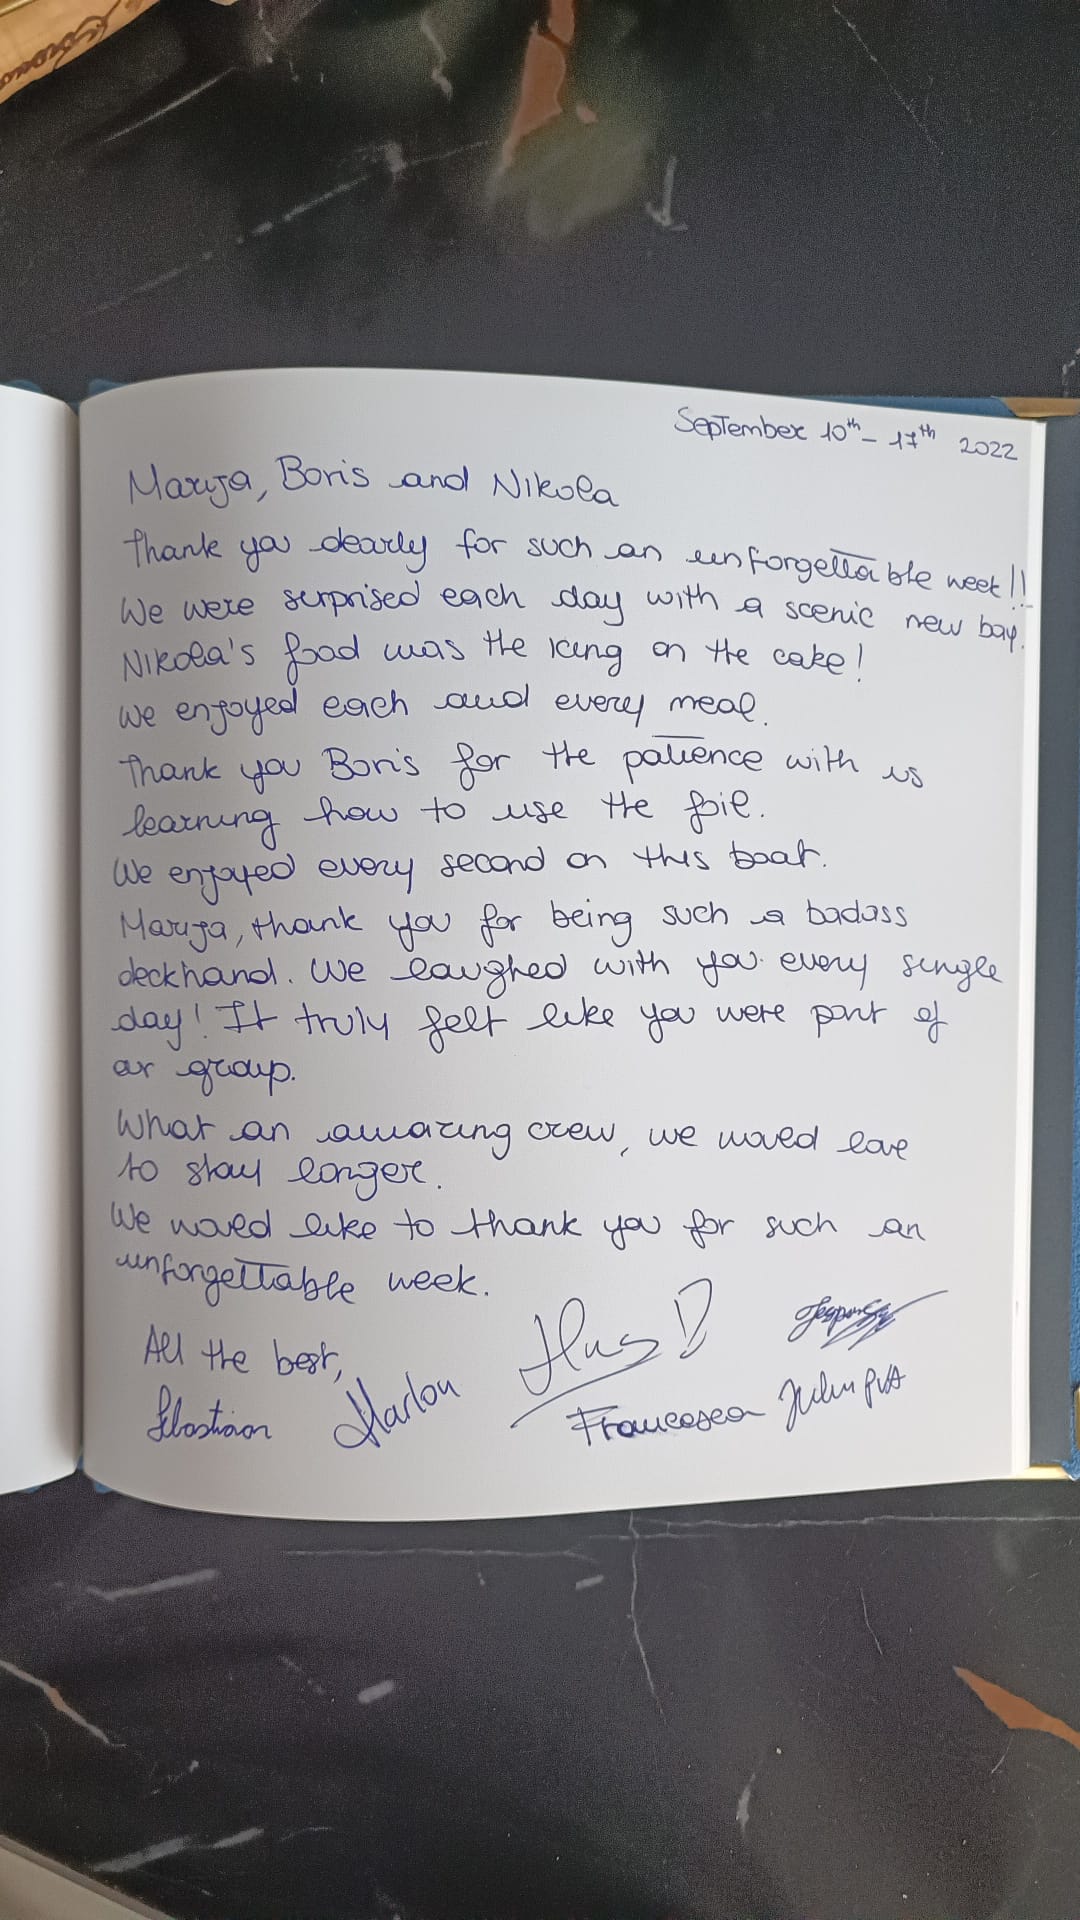 September 10th - 17th 2022
Marija, Boris and Nikola
Thank you dearly for such an unforgettable week!!
We were surprised each day with a scenic new bay.
Nikola's food was the icing on the cake!
We enjoyed each and every meal.
Thank you Boris for the patience with us
learning how to use the foil.
We enjoyed every second on this boat.
Marija, thank you for being such a badass
deckhand. We laughed with you every single
day! It truly felt like you were part of
our group.
What an amazing crew, we would love
to stay longer.
We would like to thank you for such an
unforgettable week.
All the best,
Sebastiaan Marlou Francesca